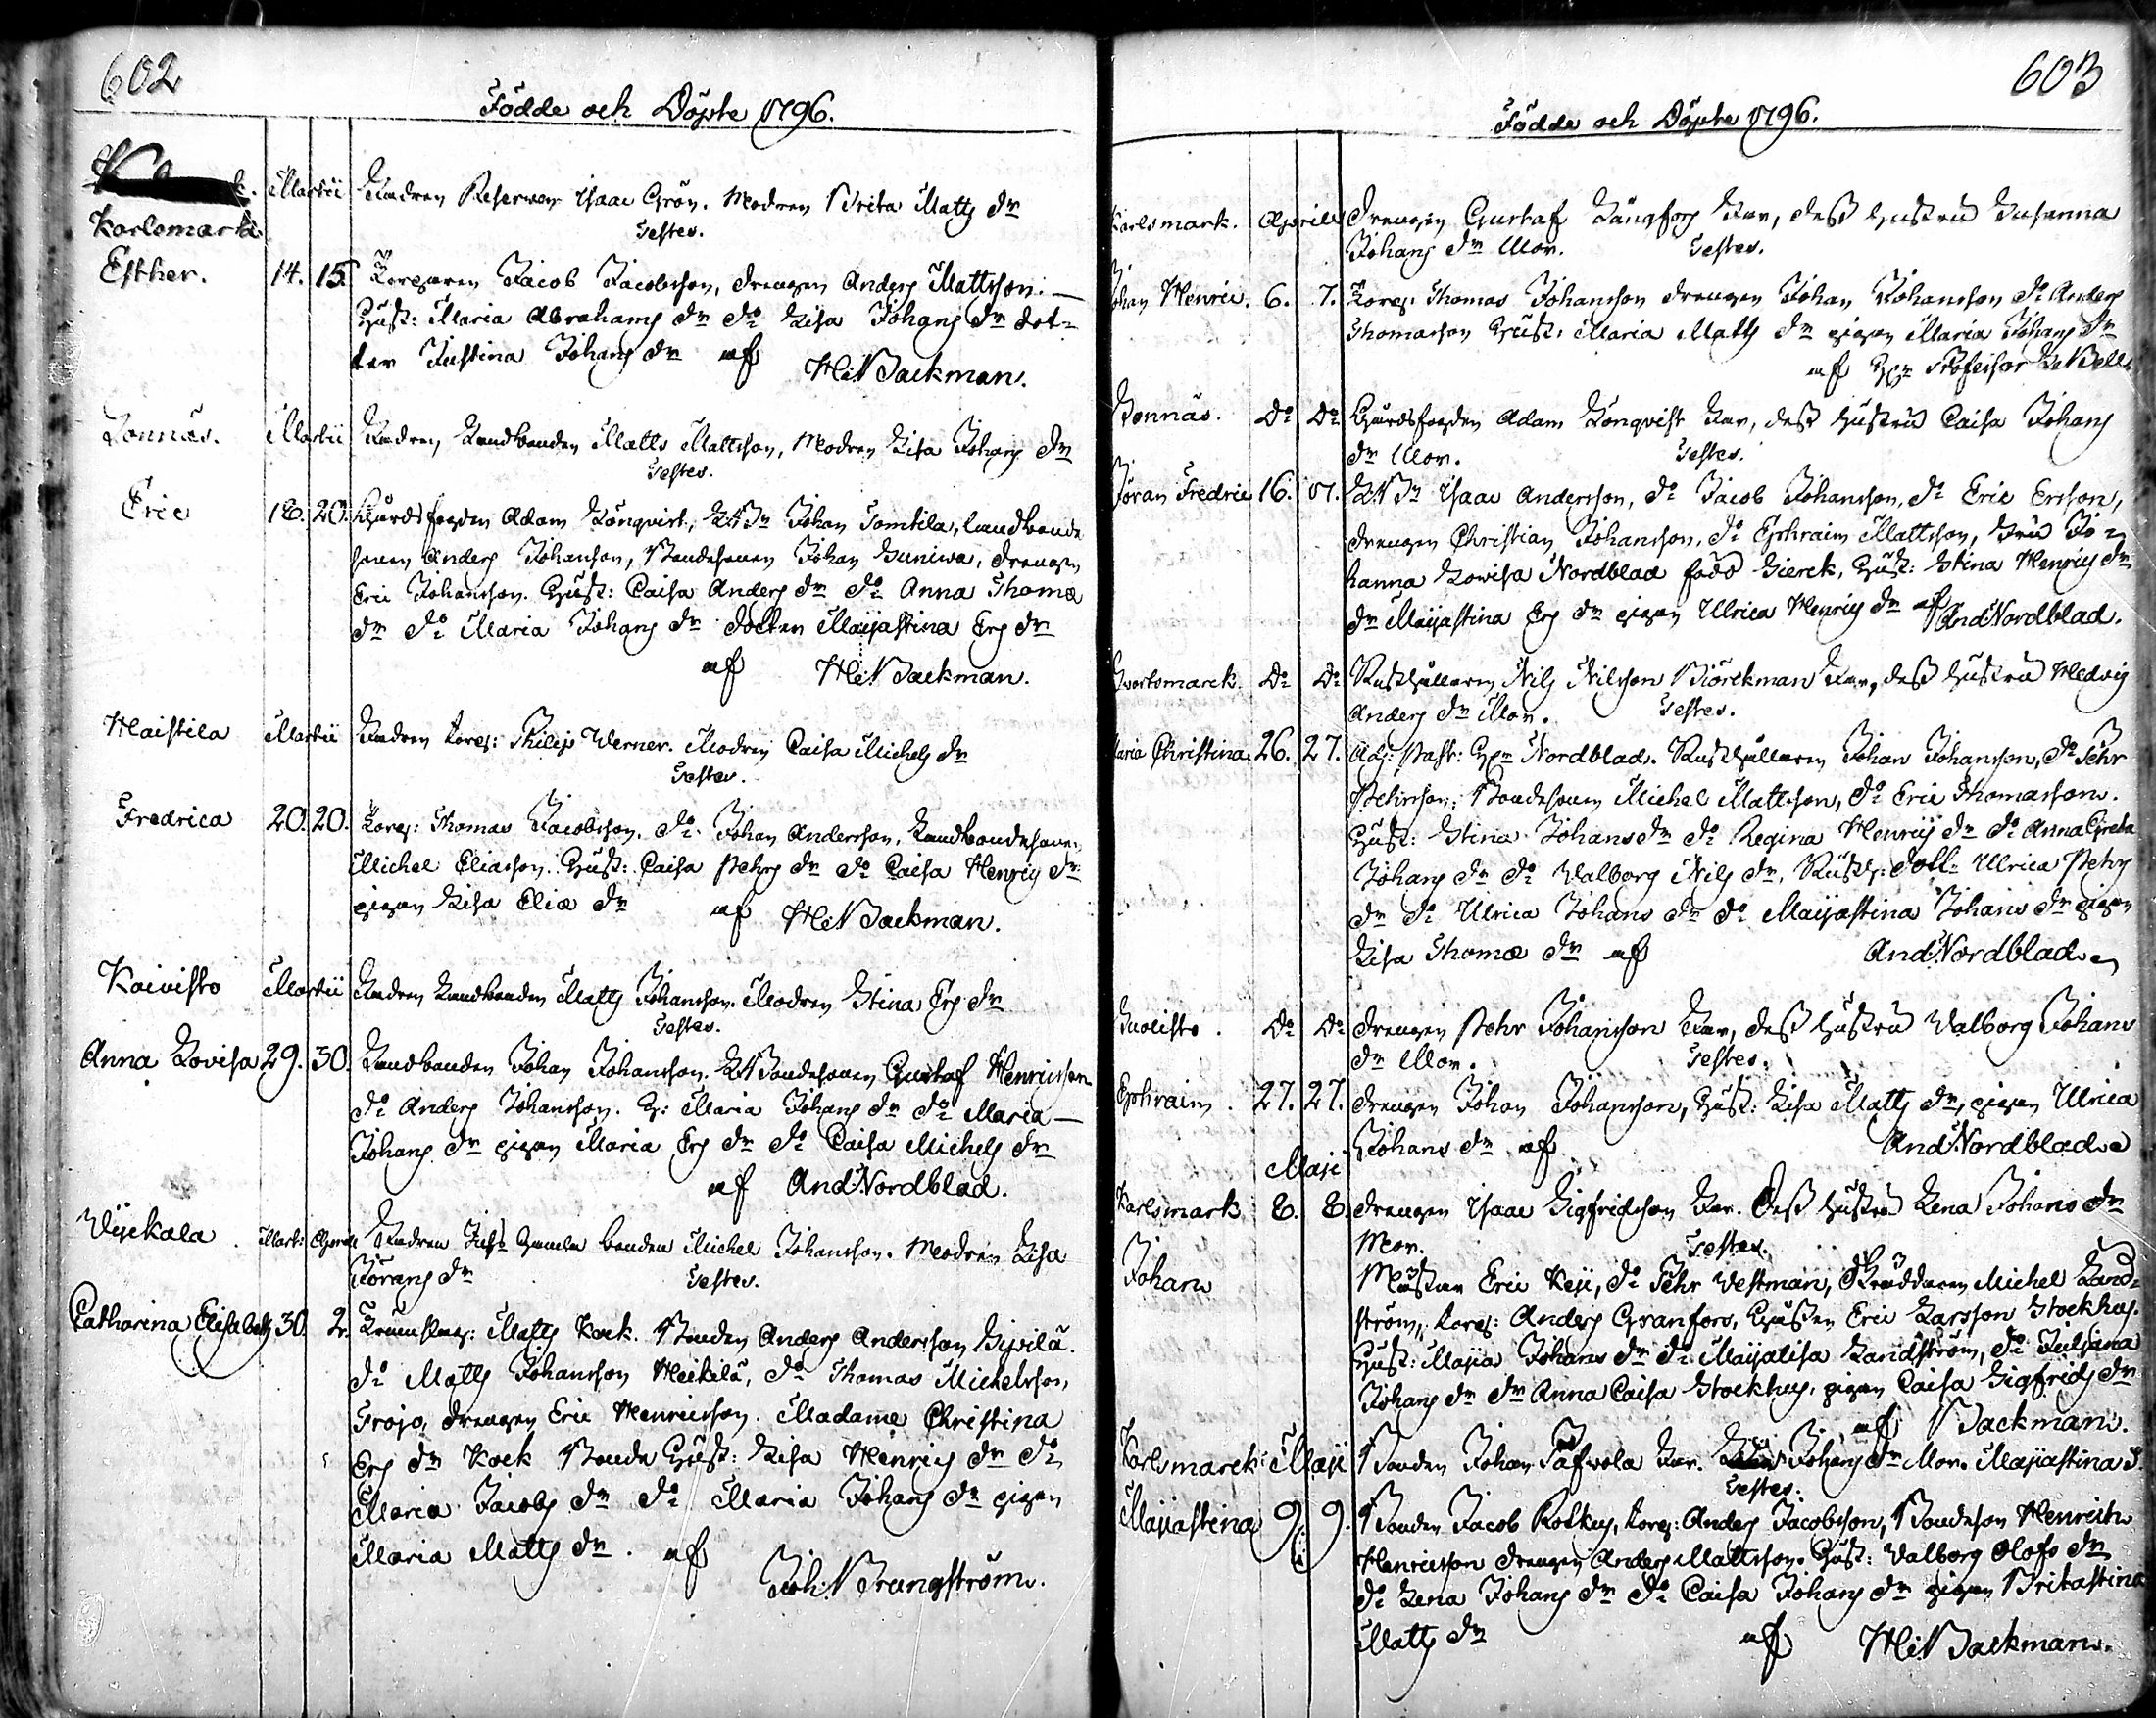 602
Födde och Döpte 1796.
Karlsmark
Martii
Fadren Reserven Isaac Grön. Modren Brita Matts dr
Testes.
Esther. 14. 15. Torparen Jacob Jacobsson, drengen Anders Mattsson.
Hust: Maria Abrahams dr do Lisa Johans dr dot=
ter Justina Johans dr af
H: Backman.
Lonnäs. Martii Fadren, Landbonden Matts Mattsson, Modren Lisa Johans dr
Testes.
Eric 18. 20. Gårdsfogden Adam Lönqvist, Johan Tomtila, Landbonde
sonen Anders Johansson, Bondesonen Johan Guniwa, drengen
Eric Johansson. Hust: Caisa Anders dr do Anna Thomæ
dr do Maria Johans dr dotten Maijastina Ers dr
af H: Backman.
Haistila Martii Fadren torp: Philip Werner. Modren Caisa Michels dr
Testes.
Fredrica 20. 20. Torp: Thomas Jacobsson. do Johan Andersson, Landbondesonen
Michel Eliasson. Hust: Caisa Pehrs dr do Caisa Henrics dr
pigan Lisa Eliæ dr af H: Backman.
Koivisto Martii Fadren Landbonden Matts Johansson. Modren Stina Ers dr
Testes.
Anna Lovisa 29. 30. Landbonden Johan Johansson. Bondesonen Gustaf Henricsson
do Anders Johansson. H: Maria Johans dr do Maria
Johans dr pigan Maria Ers dr do Caisa Michels dr
af And: Nordblad.
Wijckala. Mart: April Fadren Gamla bonden Michel Johansson. Modren Lisa
Jörans dr Testes.
Catharina Elisabeth 30. 2. Matts Kock. Bonden Anders Andersson Sipilä.
do Matts Johansson Heikilä, do Thomas Michelsson
Trojo, drengen Eric Henricsson. Madame Christina
Ers dr Kock Bonde Hust: Lisa Henrics dr do
Maria Jacobs dr do Maria Johans dr pigan
Maria Matts dr. af
Joh: Brungström.
603
Födde och Döpte 1796.
Karlsmark. Aprilis Drengen Gustaf Långfors Far, dess hustru Susanna
Johans dr Mor. Testes.
Johan Henric. 6. 7. Torp: Thomas Johansson drengen Johan Johansson do Anders
Thomasson Hust: Maria Matts dr pigan Maria Johans dr
af Hr Professor Lebell
Sonnäs. Do Do Gårdsfogden Adam Lönqvist Far, dess hustru Caisa Johans
dr Mor. Testes.
Jöran Fredric 16. 17. Isaac Andersson, do Jacob Johansson, do Eric Ersson,
drengen Christian Johansson, do Ephraim Mattsson, Fru Jo=
hanna Lovisa Nordblad född Gierck, Hust: Stina Henrics dr
dr Maijastina Ers dr pigan Ulrica Henrics dr af And: Nordblad.
Svartsmarck. Do Do Rusthållaren Nils Nilsson Biörckman Far, dess hustru Hedvig
Anders dr Mor. Testes.
Maria Christina 26. 27. Adj: Past: Hr Nordblad. Rusthållaren Johan Johansson, do Pehr
Pehrsson, Bondesonen Michel Mattsson, do Eric Thomasson.
Hust: Stina Johans dr do Regina Henrics dr do Anna Greta
Johans dr do Walborg Nils dr. Rusth: Dott: Ulrica Pehrs
dr do Ulrica Johans dr do Maijastina Johans dr pigan
Lisa Thomæ dr af And: Nordblad.
Suolisto. Do Do drengen Pehr Johansson Far, dess hustru Walborg Johans
dr Mor. Testes.
Ephraim. 27. 27. drengen Johan Johansson, Hust: Lisa Matts dr, pigan Ulrica
Johans dr af And: Nordblad.
Maji
Karlsmark 8. 8. drengen Isaac Sigfridsson Far. Dess hustru Lena Johans dr
Mor. Testes.
Johan Eric Keji, do Pehr Westman, Skräddaren Michel Land=
ström, torp: Anders Granfors, Eric Larsson Stockhus.
Hust: Maja Johans dr do Maijalisa Landström, do Juliana
Johans dr dr Anna Caisa Stockhus, pigan Caisa Sigfrids dr
af Backman.
Karlsmarck Maji Bonden Johan Far. Johans dr Mor. Majastina J.
Testes.
Majastina 9. 9. Bonden Jacob Rotkus, torp: Anders Jacobsson, Bondeson Henrich
Henricsson drengen Anders Mattsson. Hust: Valborg Olofs dr
do Lena Johans dr do Caisa Johans dr pigan Britastina
Matts dr af H: Backman.